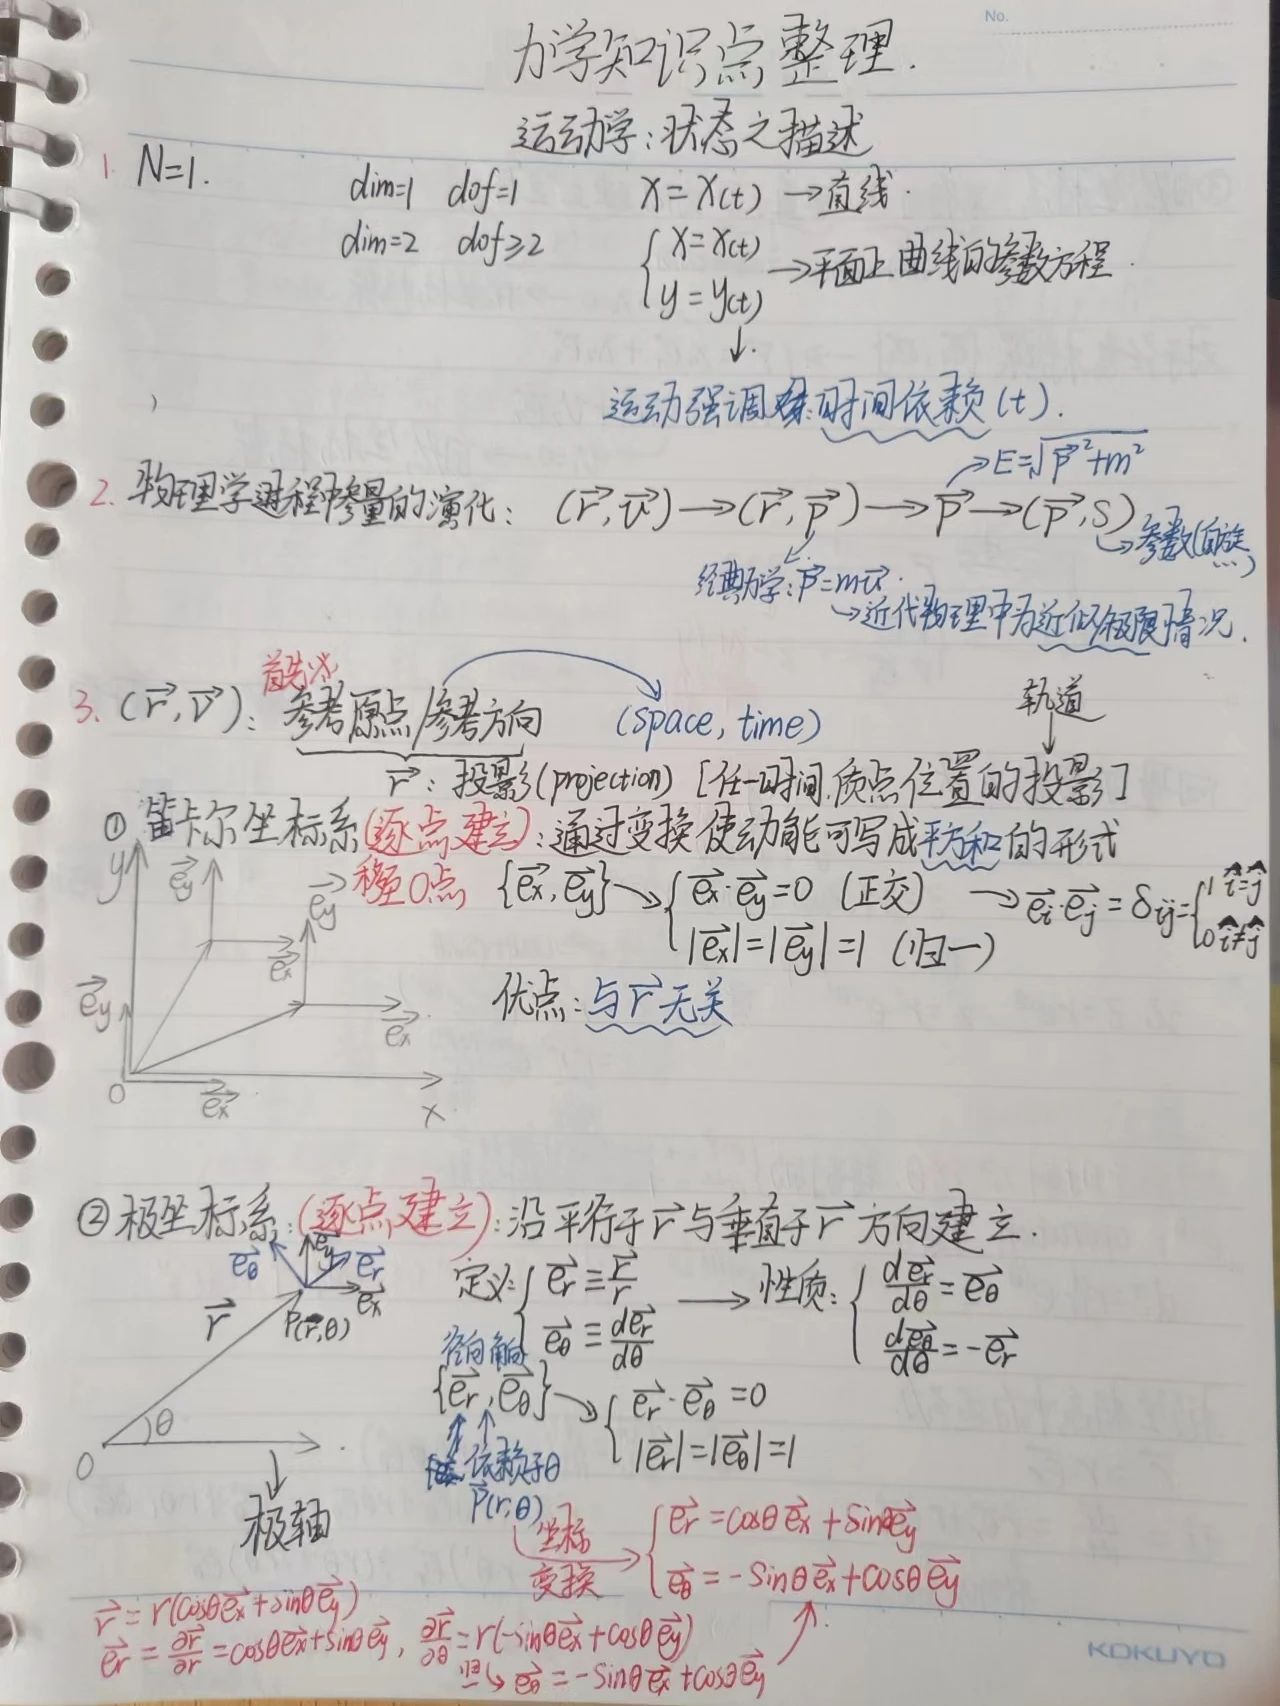 No.
力学知识点整理.
运动学:状态之描述
1. N=1.
dim=1 dof=1 x=x(t) →直线.
dim=2 dof≥2 { x=x(t) y=y(t) →平面上曲线的参数方程.
↓
运动强调时间依赖(t).
→E=√(p⃗²+m²)
2. 物理学进程中参量的演化: (r⃗,v⃗)→(r⃗,p⃗)→p⃗→(p⃗,s)
→参数(自旋)
经典力学:p⃗=mv⃗.
→近代物理中为近似/极限情况.
首先
3. (r⃗,v⃗): 参考原点/参考方向 (space, time) 轨道
r⃗: 投影(projection) [任一时间,质点位置的投影]
① 笛卡尔坐标系(逐点建立):通过变换使动能可写成平方和的形式
移至0点 {e⃗x,e⃗y}→{ e⃗x·e⃗y=0 (正交) →e⃗i·e⃗j=δij={1 î=ĵ 0 î≠ĵ
|e⃗x|=|e⃗y|=1 (归一)
优点:与r⃗无关
y e⃗y e⃗y e⃗x e⃗y e⃗x
O e⃗x x
② 极坐标系:(逐点建立):沿平行于r⃗与垂直于r⃗方向建立.
e⃗θ e⃗y e⃗r e⃗x
r⃗ P(r⃗,θ)
O θ
极轴
定义:{ e⃗r≡r⃗/r e⃗θ≡de⃗r/dθ → 性质:{ de⃗r/dθ=e⃗θ de⃗θ/dθ=-e⃗r
径向 角向
{e⃗r,e⃗θ}→{ e⃗r·e⃗θ=0 |e⃗r|=|e⃗θ|=1
依赖于θ
P(r,θ)
坐标变换 →{ e⃗r=cosθe⃗x+sinθe⃗y
e⃗θ=-sinθe⃗x+cosθe⃗y
r⃗=r(cosθe⃗x+sinθe⃗y)
e⃗r=∂r⃗/∂r=cosθe⃗x+sinθe⃗y, ∂r⃗/∂θ=r(-sinθe⃗x+cosθe⃗y)
归一→e⃗θ=-sinθe⃗x+cosθe⃗y
KOKUYO